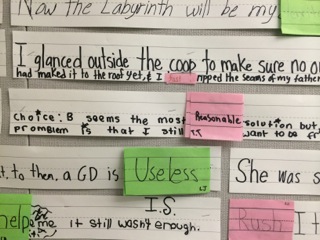 Now the Labyrinth will be my
I glanced outside the coop to make sure no o
had made it to the roof yet, & I ripped the seams of my father
choice: B seems the most Reasonable solution but
promblem is that I still want to be fr
t. to then, a GD is Useless
She was s
I.S.
help me it still wasn't enough.
Rush It